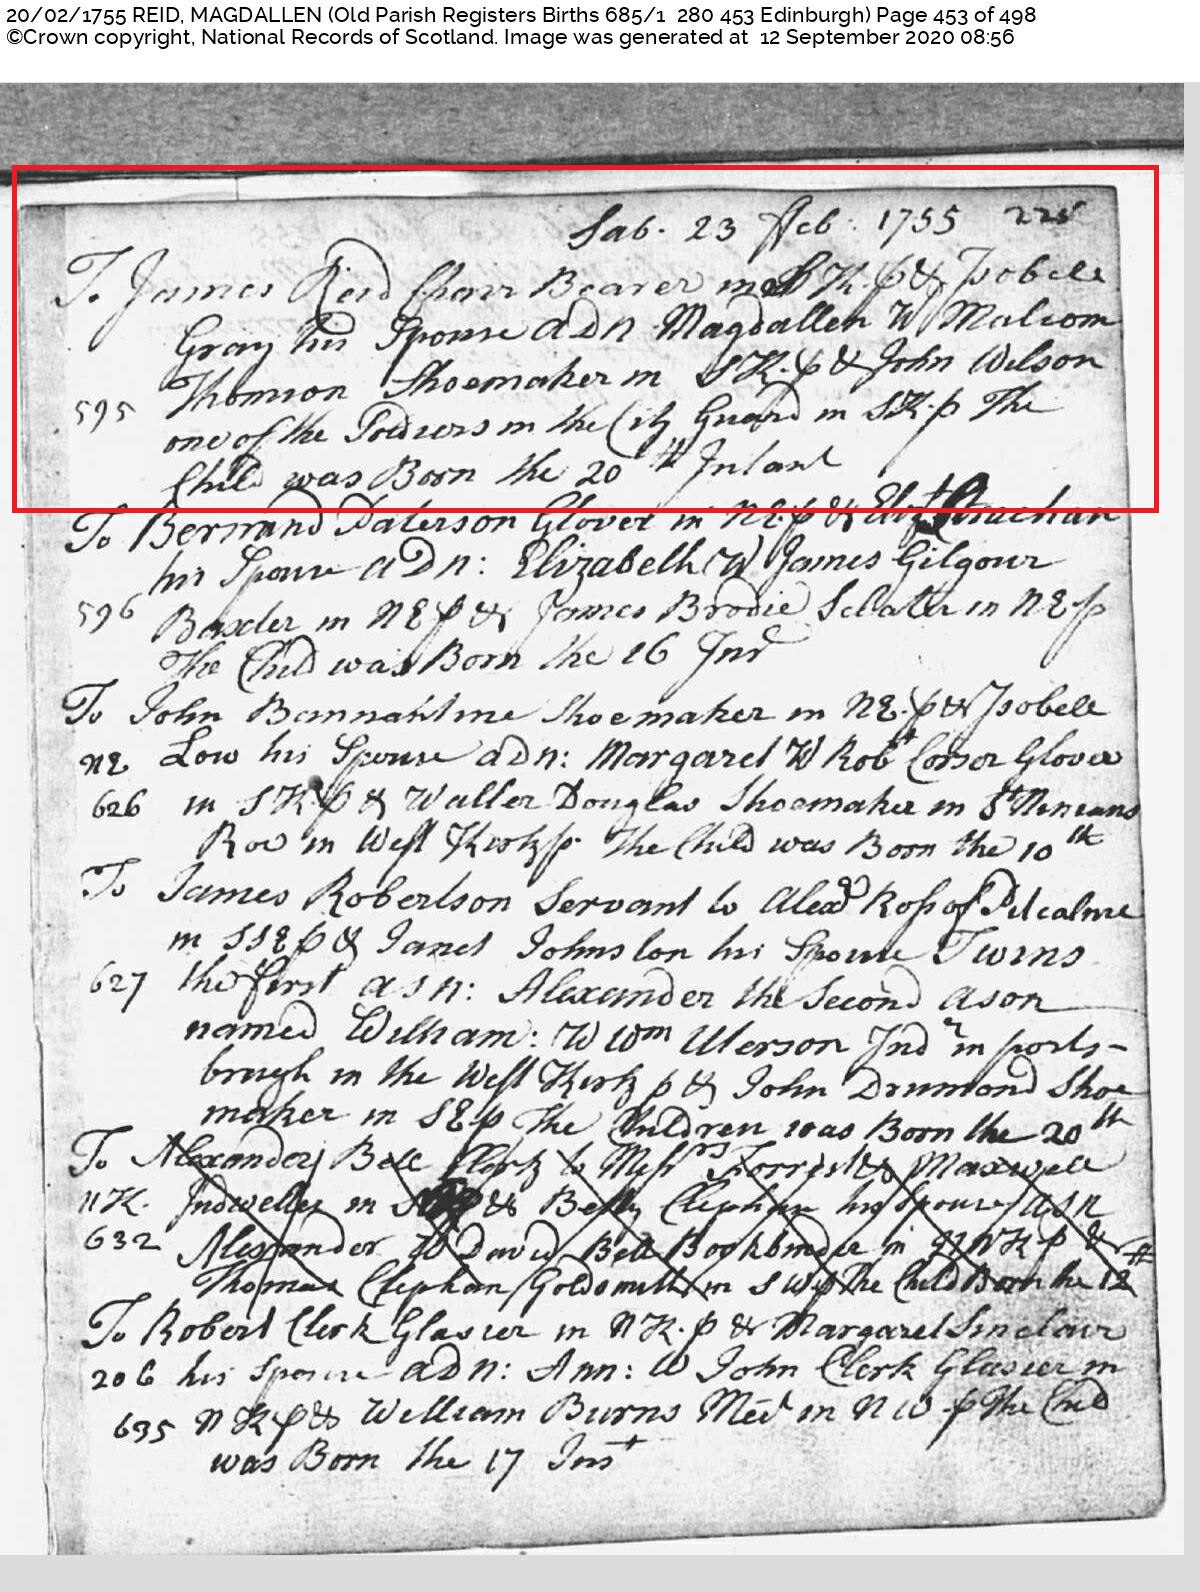 20/02/1755 REID, MAGDALLEN (Old Parish Registers Births 685/1 280 453 Edinburgh) Page 453 of 498
©Crown copyright, National Records of Scotland. Image was generated at 12 September 2020 08:56
Sab. 23 ffeb: 1755 225
To James Reid Chair Bearer in S K. p & Isobell
Gray his Spouse a D n Magdallen W Malcom
Thomson Shoemaker in S K. p & John Wilson
595
one of the Soldiers in the City Guard in S K. p The
Child was Born the 20th Instant
To Bertrand Paterson Glover in N E. p & Elizt Strachan
his Spouse a D n: Elizabeth W James Gilgour
596 Baxter in N E p & James Brodie Sclater in N E. p
The Child was Born the 16 Inst
To John Bannahtine Shoemaker in N E. p & Isobell
NE Low his Spouse a D n: Margaret W Robt Corser Glover
626 in S K. p & Walter Douglas Shoemaker in St Ninians
Row in West Kirk p. The Child was Born the 10th
To James Robertson Servant to Alexr Ross of Pitcalnie
in S S E p & Janet Johnston his Spouse Twins
627 the first a S n: Alexander the Second a son
named William: W Wm Uterson Indr in ports-
brugh in the West Kirk p & John Drumond Shoe
maker in S E p The Children was Born the 20th
To Alexander Bell Clerk to Messrs Forrest & Maxwell
NK. Indweller in & Betty Clephan his Spouse a S n
632 Alexander W David Bell Bookbinder in N K p &
Thomas Clephan Goldsmith in S W p The Child Born the 12th
To Robert Clerk Glasier in N K. p & Margaret Sinclair
206 his Spouse a D n: Ann: W John Clerk Glasier in
635 N K p & William Burns Mert in N W. p The Child
was Born the 17 Inst